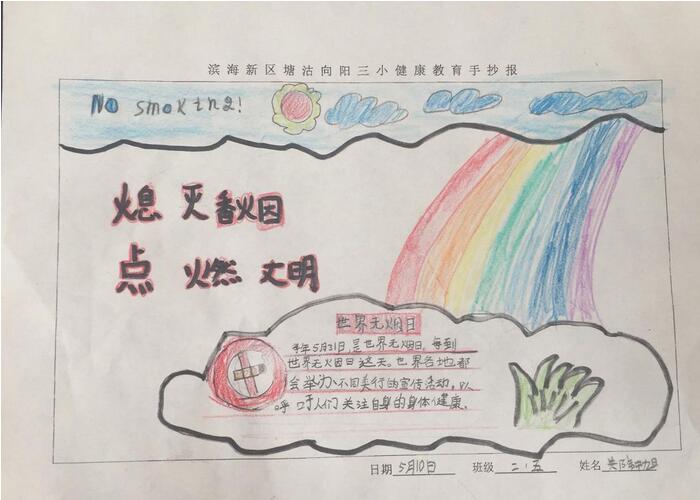 滨海新区塘沽向阳三小健康教育手抄报
No smoking!
熄灭香烟
点燃文明
世界无烟日
年5月31日是世界无烟日，每到
世界无烟日这天。世界各地都
会举为不同美行的宣传活动，以
呼吁人们关注自身的身体健康。
日期 5月10日 班级 二.五 姓名